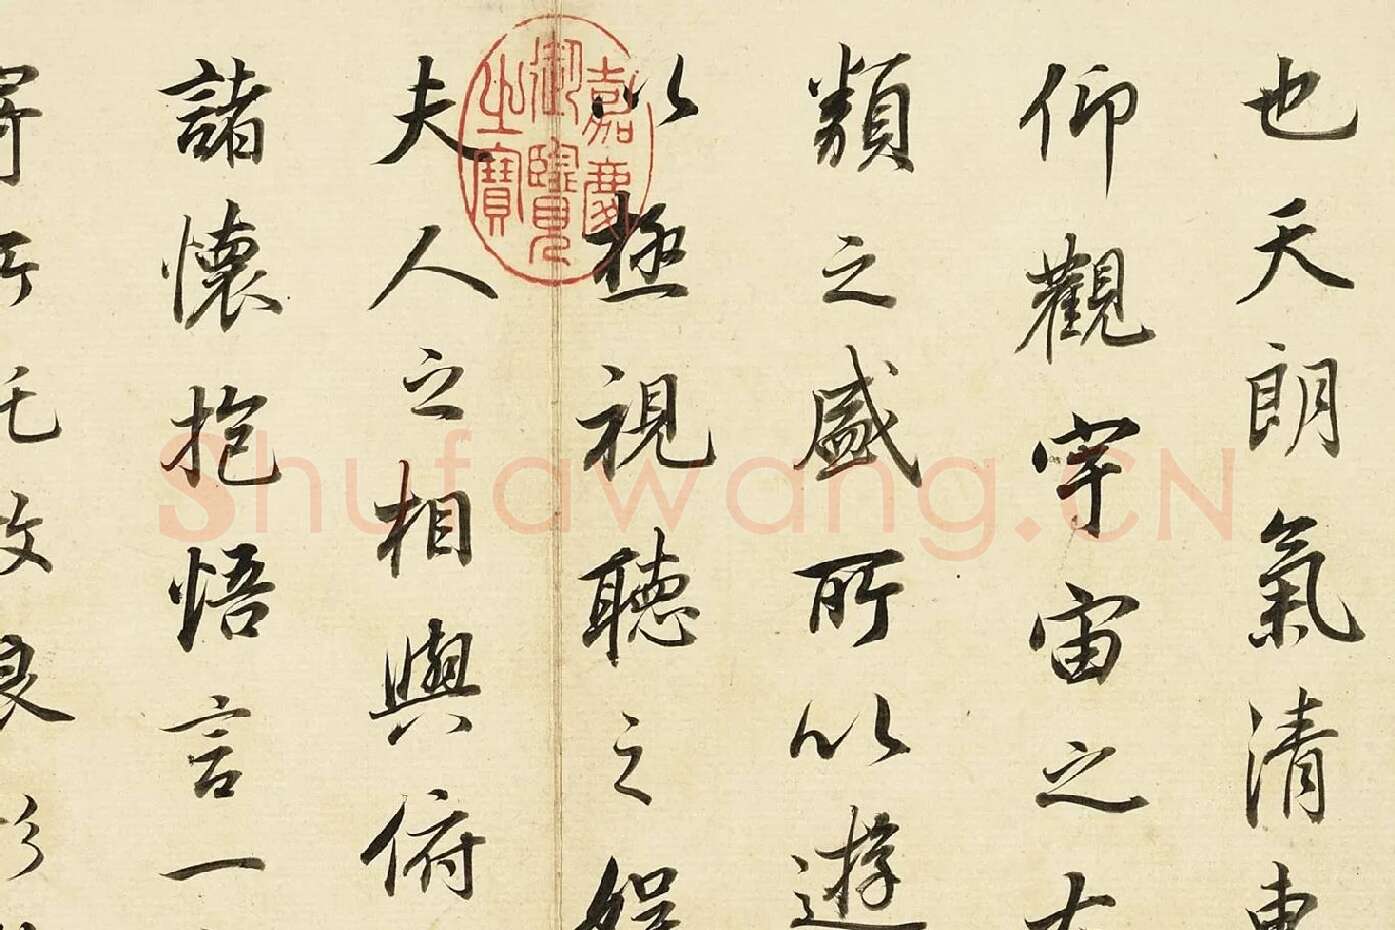 也天朗氣清惠
仰觀宇宙之大
類之盛所以遊
以極視聽之娛
夫人之相與俯
諸懷抱悟言一
寄所託放浪形
嘉慶御覽之寶
Shufawang.CN